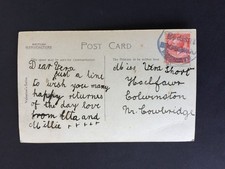 POST CARD
Dear Vera
just a line
to wish you many
happy returns
of the day love
from Ella and
Millie
Miss Vera Short
Colwinston
Nr. Cowbridge